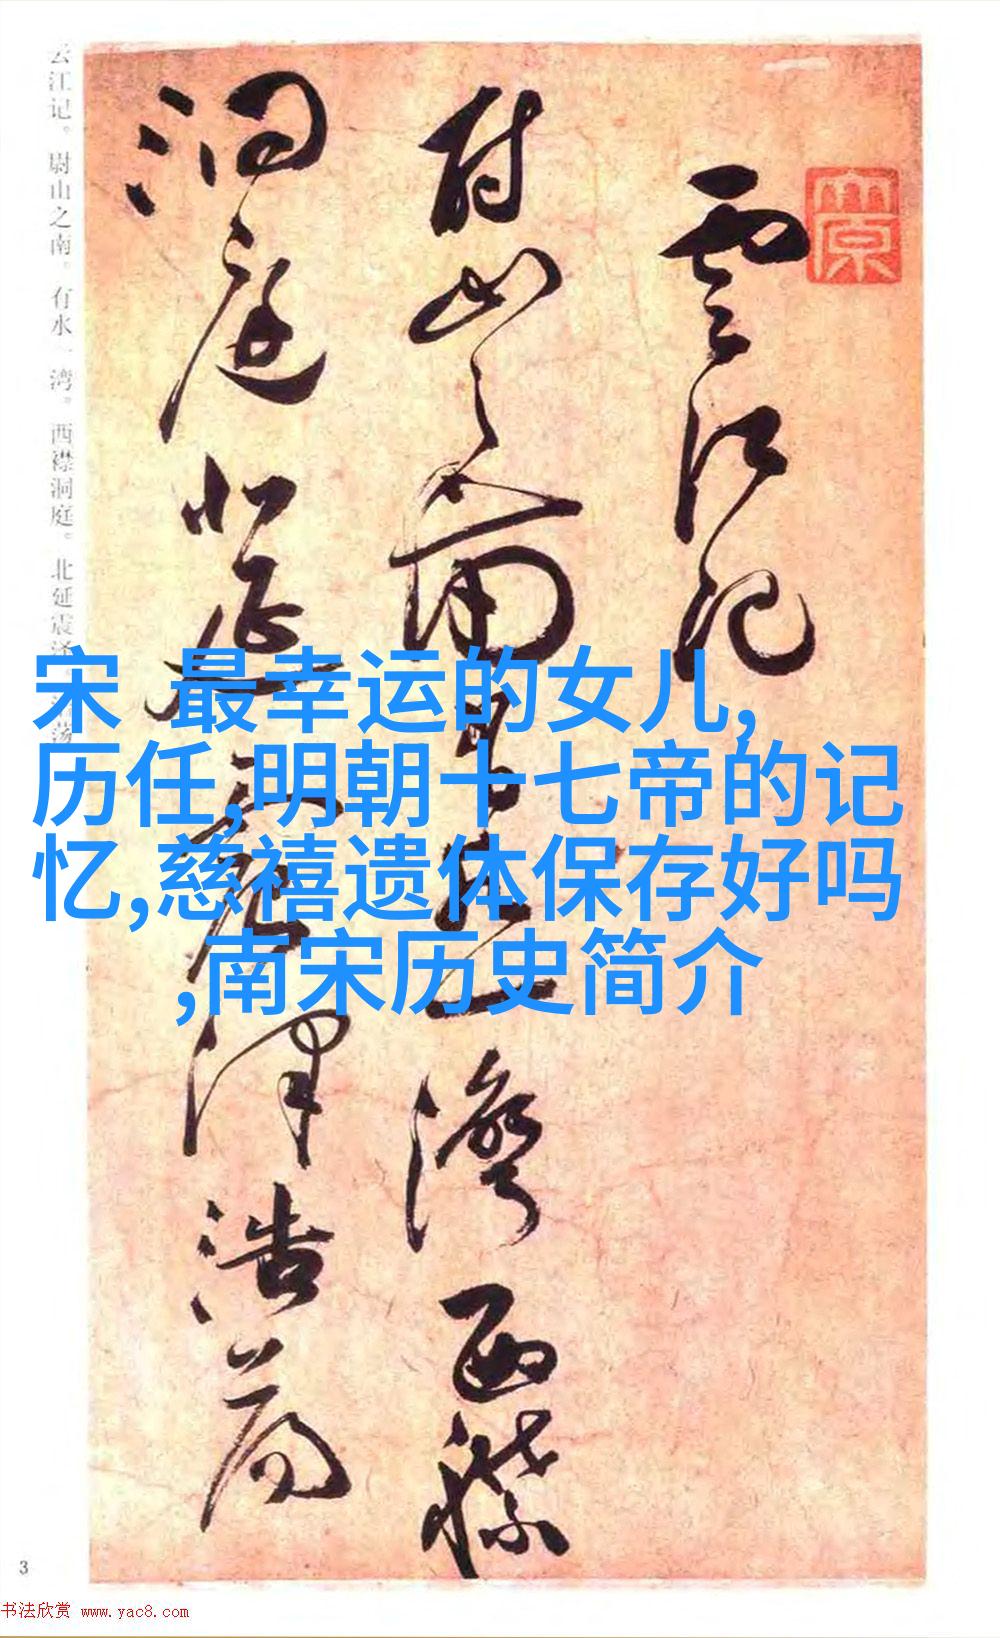 雲江记
尉山之南有水一湾西襟
洞庭北延震泽浩荡
云江记。尉山之南。有水一湾。西襟洞庭。北延震泽
荡
宋 最幸运的女儿,
历任,明朝十七帝的记
忆,慈禧遗体保存好吗
,南宋历史简介
3
书法欣赏 www.yac8.com